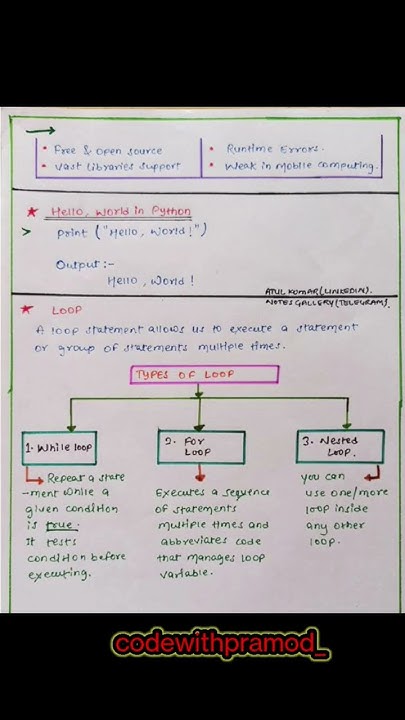 • Free & open source
• Vast Libraries support
• Runtime Errors.
• Weak in Mobile computing.
★ Hello, World in Python
> print ("Hello, World!")
Output :-
Hello, World !
ATUL KUMAR (LINKEDIN).
NOTES GALLERY (TELEGRAM).
★ LOOP
A loop statement allows us to execute a statement
or group of statements multiple times.
TYPES OF LOOP
1. While loop
Repeat a state
-ment while a
given condition
is true.
It tests
condition before
executing.
2. For
LOOP
Executes a sequence
of statements
multiple times and
abbreviates code
that manages loop
variable.
3. Nested
LOOP.
you can
use one/more
loop inside
any other
loop.
codewithpramod_